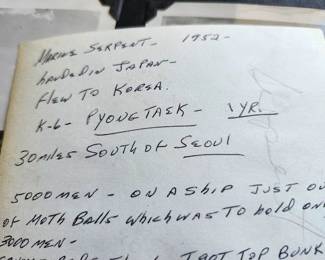 Marine Serpent - 1952 -
Landed in Japan -
Flew To Korea.
K-6 - Pyongtaek - 1 yr.
30 miles South of Seoul
5000 men - on a ship just ou
of Moth Balls which was to hold on
3000 men -
Top Bunk